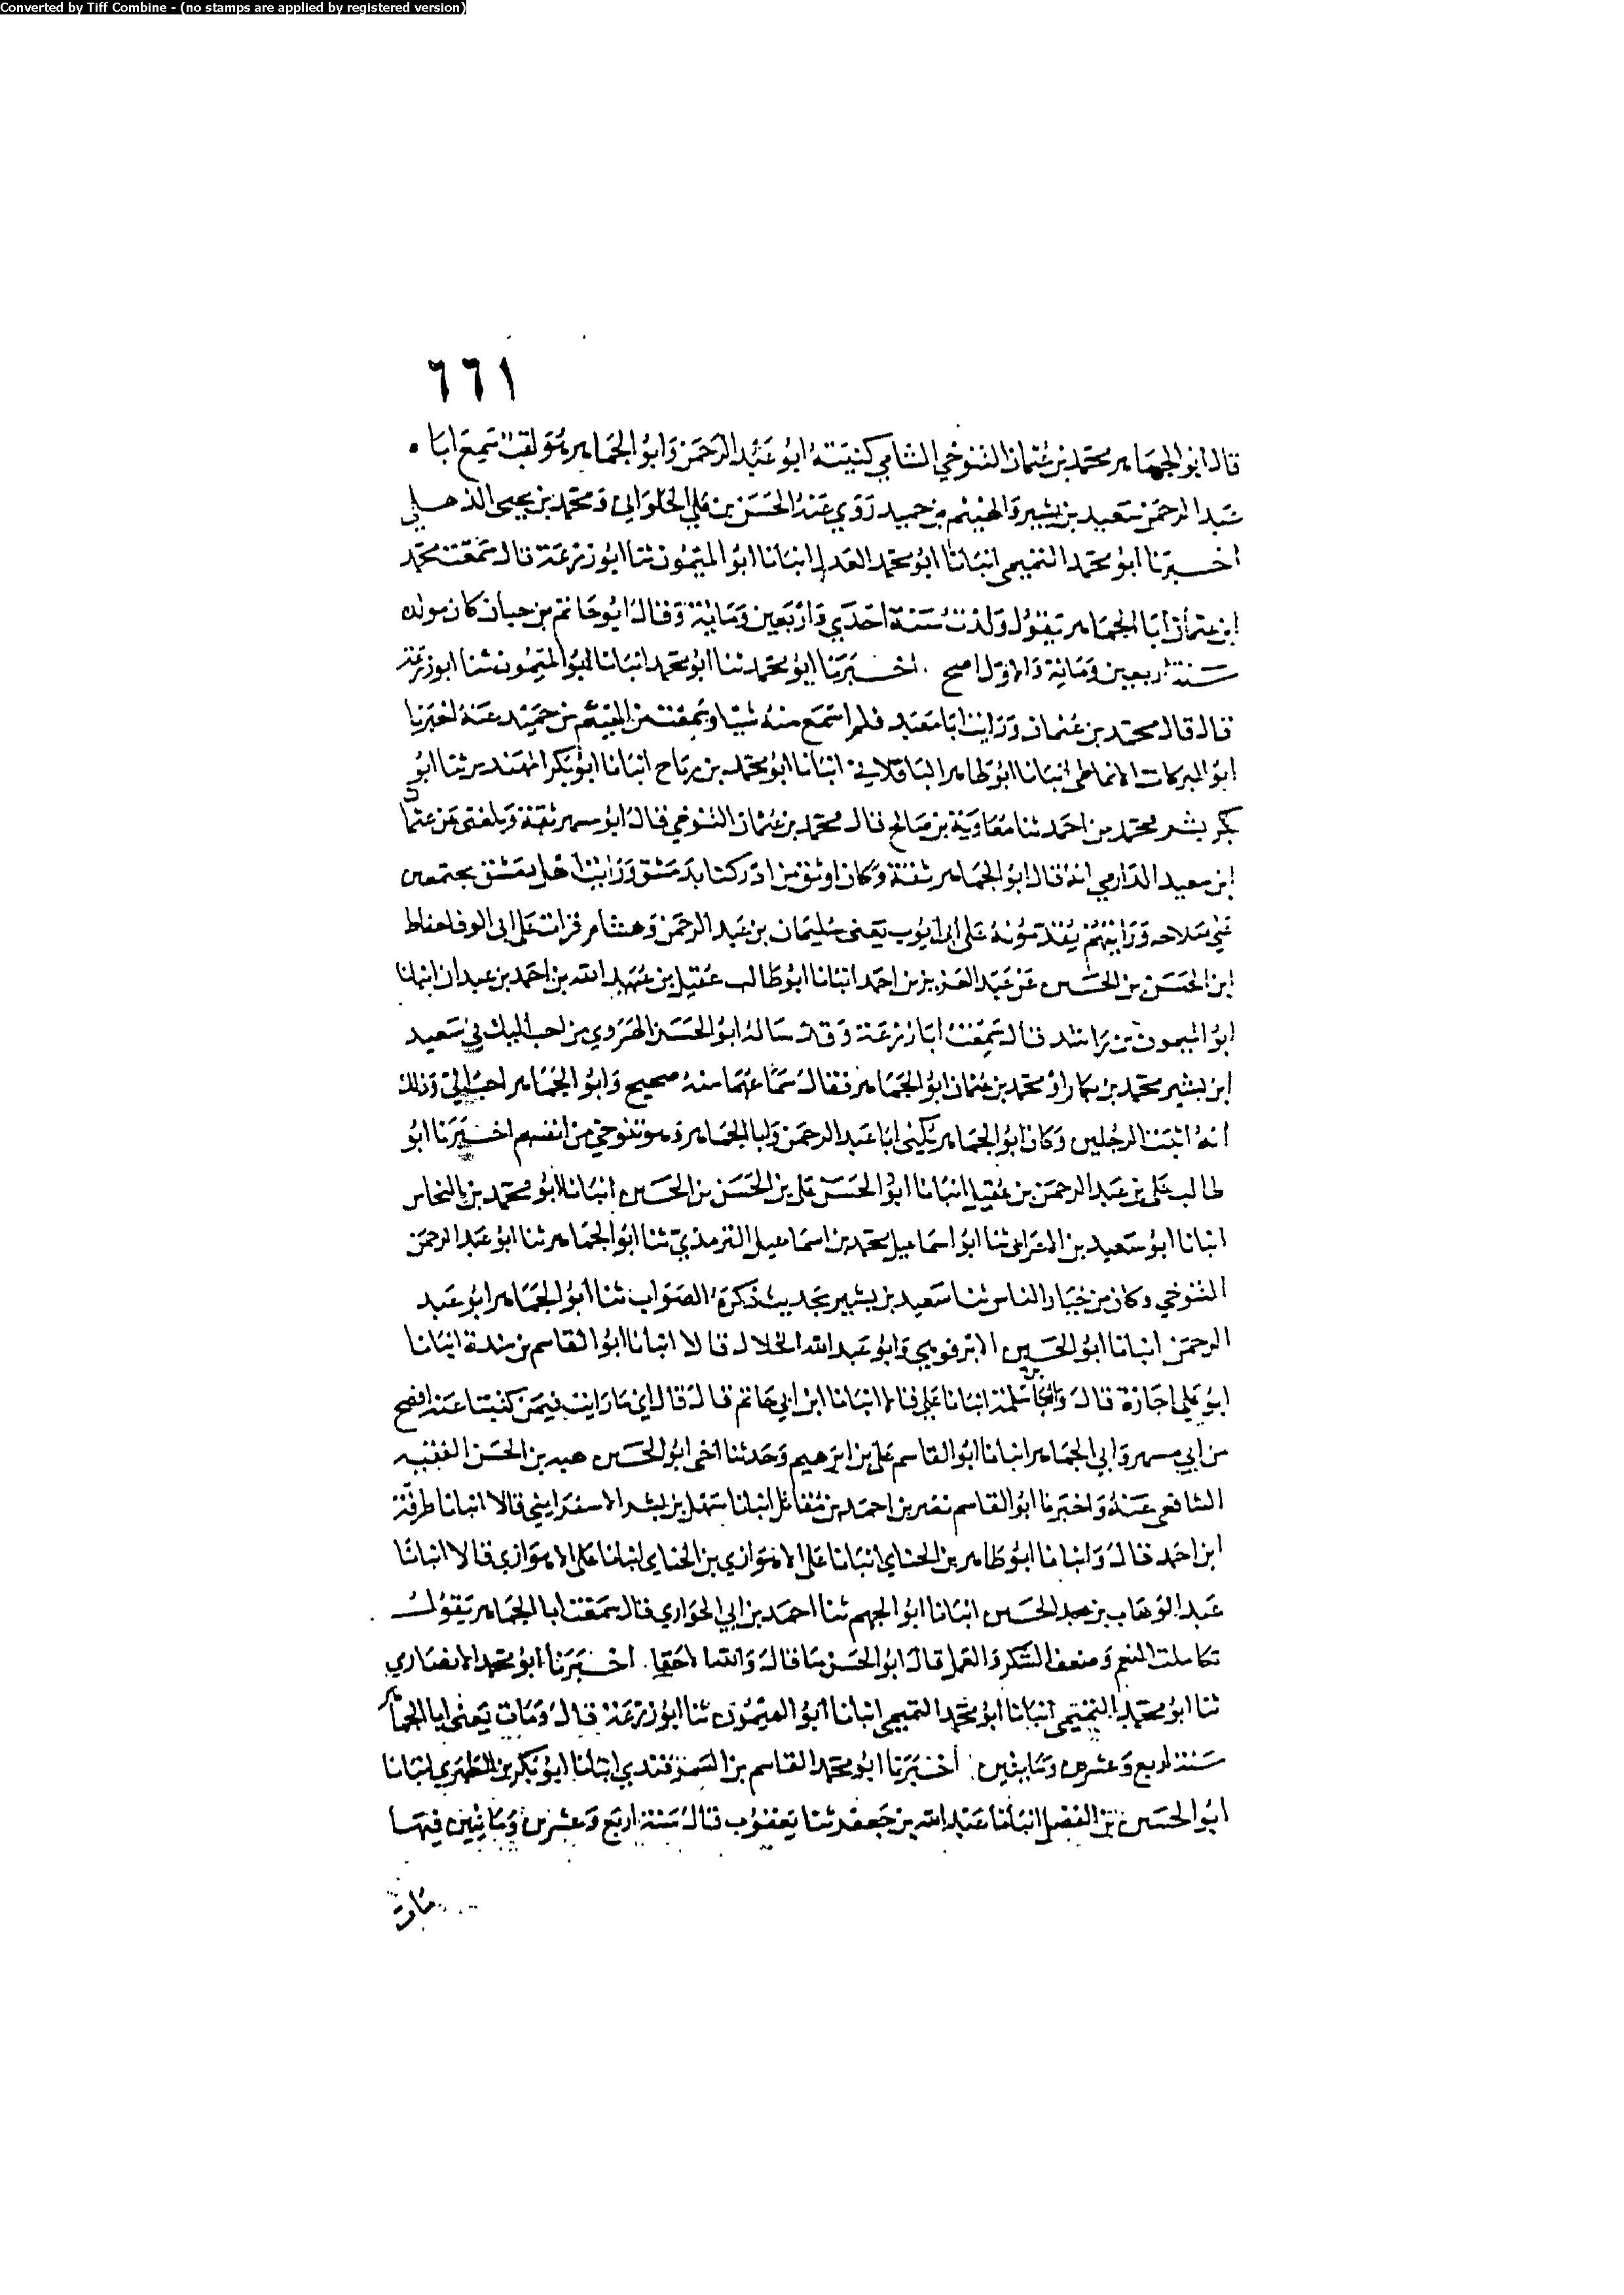 Converted by Tiff Combine - (no stamps are applied by registered version)
٦٦١
قال ابو الجماهر محمد بن عثمان التنوخي الشامي كنيته ابو عبد الرحمن وابو الجماهر هو لقب سميع ابا
عبد الرحمن سعيد بن بشير والهيثم بن حميد روي عنه الحسن بن علي الحلواني ومحمد بن يحيى الذهلي
اخبرنا ابو محمد التميمي انبانا ابو محمد العدل انبانا ابو الميمون ثنا ابو زرعة قال سمعت محمد
ابن عثمان ابا الجماهر يقول ولدت سنة احدي واربعين ومائة وقال ابو حاتم بن حبان كان مولده
سنة اربعين ومائة والاول اصح . اخبرنا ابو محمد ثنا ابو محمد انبانا ابو الميمون ثنا ابو زرعة
قال قال محمد بن عثمان ورايت ابا معبد فلم اسمع منه شيئا وسمعت من الهيثم بن حميد عنه اخبرنا
ابو البركات الانماطي انبانا ابو طاهر الباقلاني انبانا ابو محمد بن رباح انبانا ابو بكر المهندس ثنا ابو
بكر بشر محمد بن احمد ثنا معاوية بن صالح قال محمد بن عثمان التنوخي قال ابو مسهر ثقة وبلغني عن عثمان
ابن سعيد الدارمي انه قال ابو الجماهر ثقة وكان اوثق من ادركنا بدمشق ورايت اهل دمشق مجتمعين
علي صلاحه ورايتهم يقدمونه على ابي ايوب يعنى سليمان بن عبد الرحمن وهشام قرات على ابي الوفا حفاظ
ابن الحسن بن الحسين عن عبد العزيز بن احمد انبانا ابو طالب عقيل بن عبيد الله بن احمد بن عبدان انبانا
ابو الميمون بن راشد قال سمعت ابا زرعة وقد ساله ابو الحسن الهروي من احب اليك في سعيد
ابن بشير محمد بن بكار او محمد بن عثمان ابو الجماهر فقال سماعهما منه صحيح وابو الجماهر احب الي وذلك
انه اثبت الرجلين وكان ابو الجماهر يكنى ابا عبد الرحمن وابا الجماهر وهو تنوخي من انفسهم اخبرنا ابو
طالب علي بن عبد الرحمن بن عقيل انبانا ابو الحسن علي بن الحسن بن الحسين انبانا ابو محمد بن النحاس
انبانا ابو سعيد بن الاعرابي ثنا ابو اسماعيل محمد بن اسماعيل الترمذي ثنا ابو الجماهر ثنا ابو عبد الرحمن
التنوخي وكان من خيار الناس ثنا سعيد بن بشير بحديث ذكره الصواب ثنا ابو الجماهر ابو عبد
الرحمن انبانا ابو الحسين الابرقوهي وابو عبد الله الخلال قالا انبانا ابو القاسم بن مندة انبانا
ابو علي اجازة قال وانبا سلمة انبانا علي قالا انبانا ابن ابي حاتم قال قال ابي ما رايت فيمن كتبنا عنه افصح
من ابي مسهر وابي الجماهر انبانا ابو القاسم علي بن ابرهيم وحدثنا اخي ابو الحسين هبه بن الحسن الفقيه
الشافعي عنه واخبرنا ابو القاسم نصر بن احمد بن مقاتل انبانا سهل بن بشر الاسفرايني قالا انبانا طرفة
ابن احمد قال وانبانا ابو طاهر بن الحنائي انبانا علي الاهوازي بن الحنائي انبانا علي الاهوازي قالا انبانا
عبد الوهاب بن عبد الحسين انبانا ابو الجهم ثنا احمد بن ابي الحواري قال سمعت ابا الجماهر يقول
تكاملت النعم وضعف الشكر والعمل قال ابو الحسن ما قال والله الاحقا . اخبرنا ابو محمد الانصاري
ثنا ابو محمد التميمي انبانا ابو محمد التميمي انبانا ابو الميمون ثنا ابو زرعة قال ومات يعنى ابا الجماهر
سنة اربع وعشرين ومايتين . اخبرنا ابو محمد القاسم بن السمرقندي انبانا ابو بكر بن الطبري انبانا
ابو الحسين بن الفضل انبانا عبد الله بن جعفر ثنا يعقوب قال سنة اربع وعشرين ومايتين فيها
مات